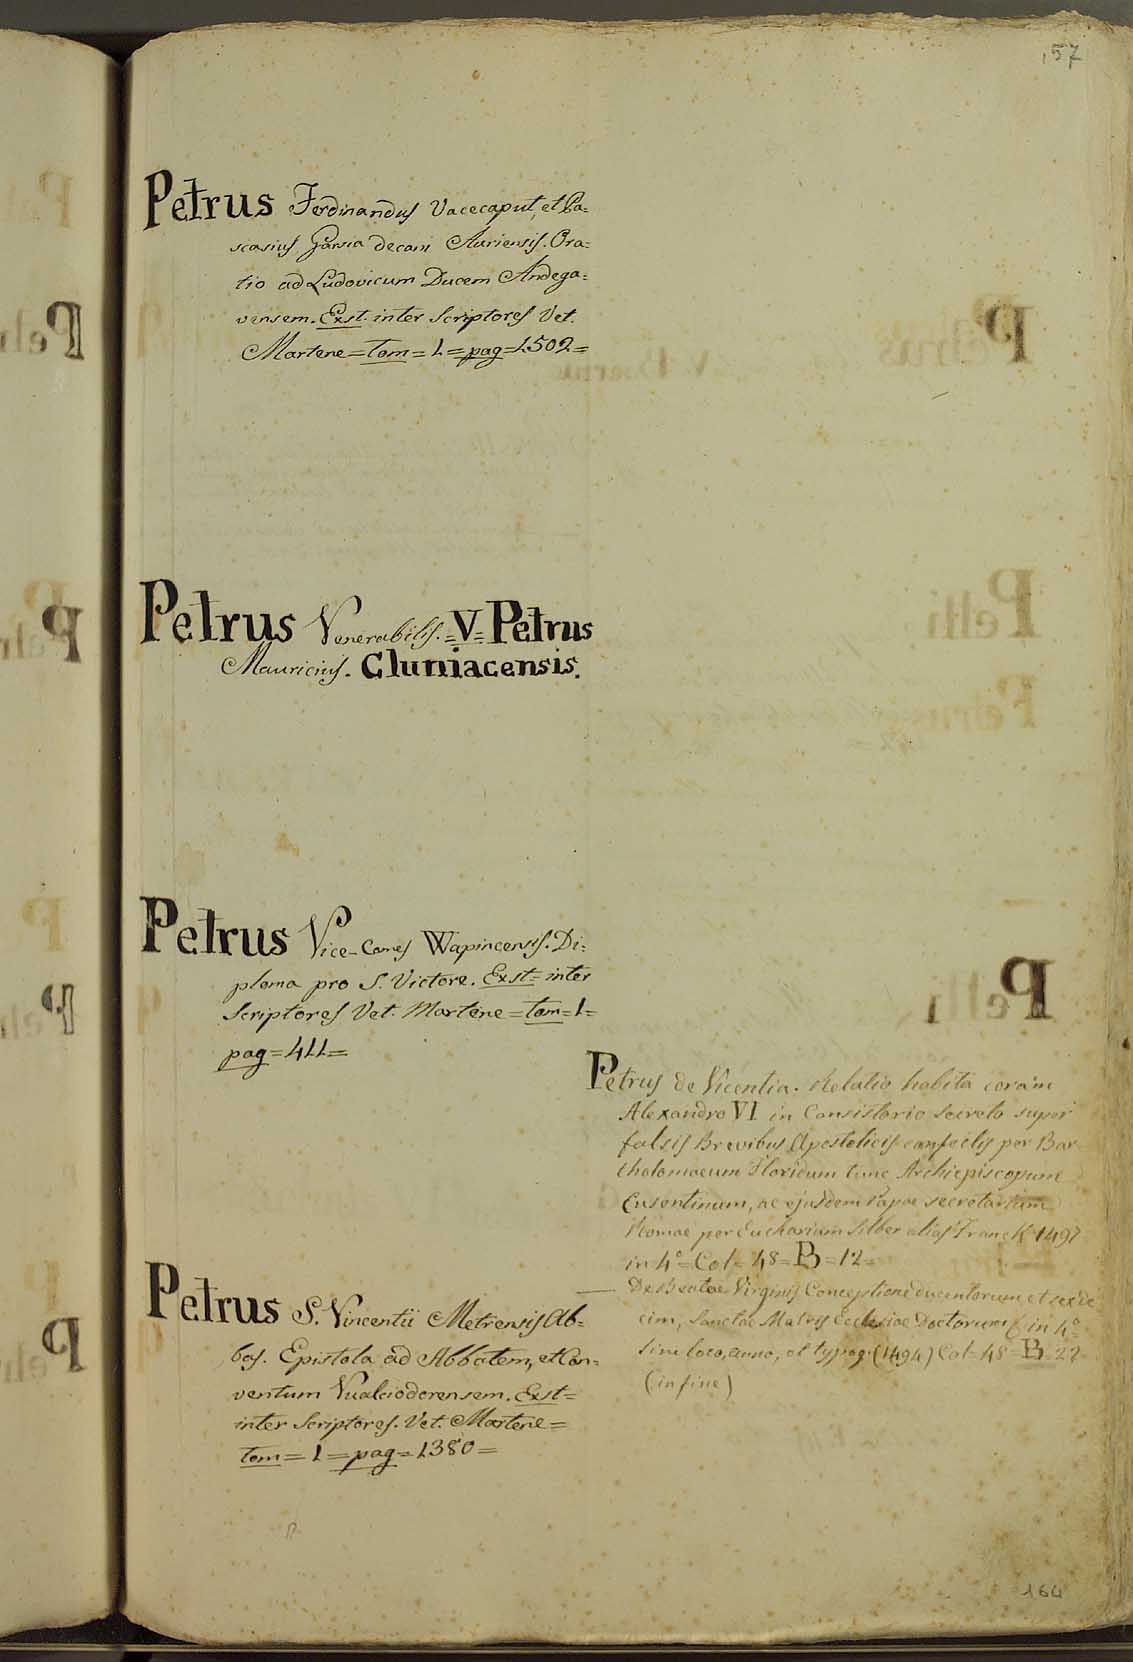 157
Petrus Ferdinandus Vacecaput, et Pa=
scasius Garsia decani Auriensis. Ora=
tio ad Ludovicum Ducem Andega=
vensem. Exst. inter Scriptores Vet.
Martene = tom = 1 = pag = 1502 =
Petrus Venerabilis. = V = Petrus
Mauricius. Cluniacensis.
Petrus Vice-Comes Wapincensis. Di=
ploma pro S. Victore. Exst = inter
Scriptores Vet. Martene = tom = 1 =
pag = 411 =
Petrus S. Vincentii Metensis Ab=
bas. Epistola ad Abbatem, et Con=
ventum Vualciodorensem. Exst =
inter Scriptores. Vet. Martene =
tom = 1 = pag = 1380 =
Petrus de Vicentia. Relatio habita coram
Alexandro VI in Consistorio secreto super
falsis Brevibus Apostolicis confectis per Bar
tholomaeum Floridum tunc Archiepiscopum
Cusentinum, ac ejusdem Papae secretarium
Romae per Eucharium Silber alias Franck 1497
in 4.º = Col = 48 = B = 12 =
— De Beatae Virginis Conceptione ducentorum et sexde
cim, Sanctae Matris Ecclesiae Doctorum &. in 4.º
sine loco, anno, et typog. (1494) Col = 48 = B = 22
(in fine)
164